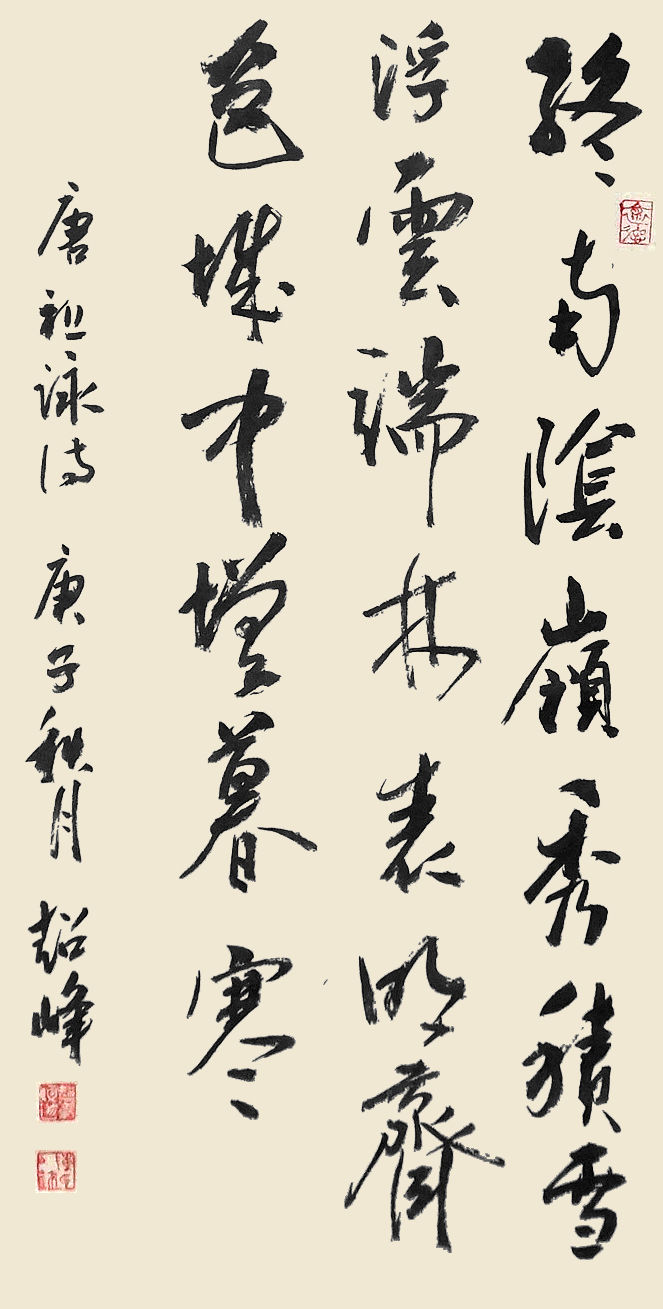 終南陰嶺秀積雪
浮雲端林表明齊
色城中增暮寒
唐祖詠詩 庚子秋月 超峰